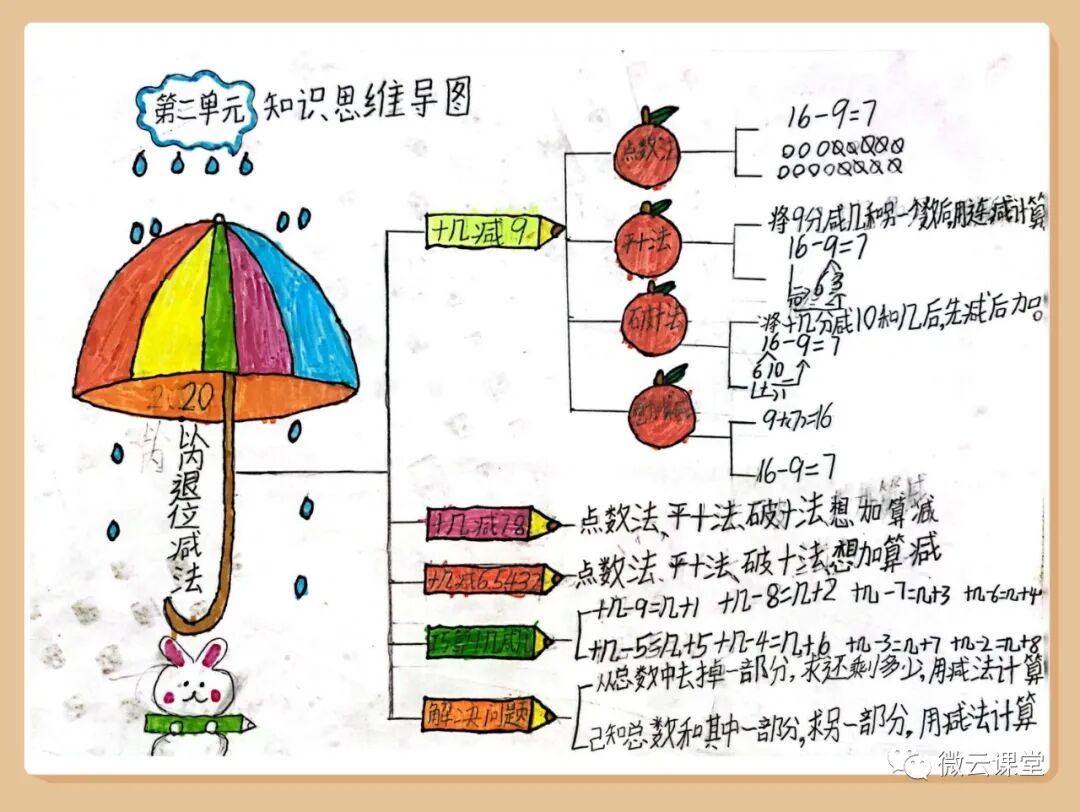 第二单元 知识思维导图
20以内退位减法
十几减9
点数法
16-9=7
平十法
将9分成几和另一个数后,用连减计算
16-9=7
破十法
将十几分成10和几后,先减后加。
16-9=7
6 10
9+(7)=16
16-9=7
十几减7 8
点数法、平十法、破十法、想加算减
十几减6.5432
点数法、平十法、破十法、想加算减
巧算十几减几
十几-9=几+1 十几-8=几+2 十几-7=几+3 十几-6=几+4
十几-5=几+5 十几-4=几+6 十几-3=几+7 十几-2=几+8
解决问题
从总数中去掉一部分,求还剩多少,用减法计算
已知总数和其中一部分,求另一部分,用减法计算
微云课堂